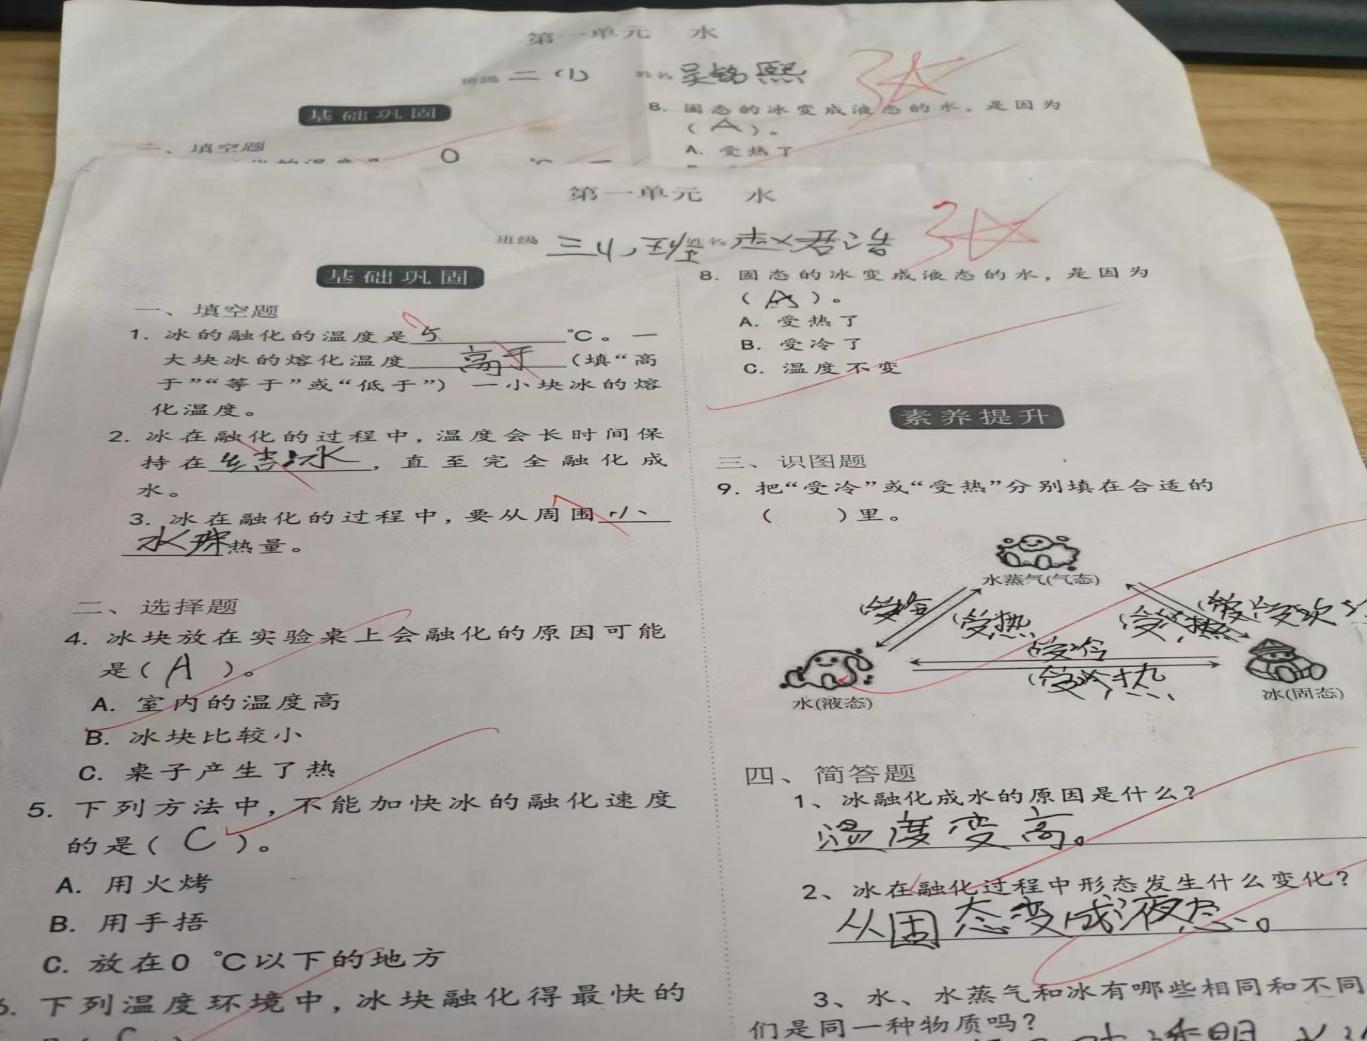 第一单元 水
班级 二(1) 姓名 吴铭熙 3
基础巩固
一、填空题
0
8. 固态的冰变成液态的水，是因为
(A)。
A. 受热了
第一单元 水
班级 三(1)班 姓名 赵君浩 3
基础巩固
一、填空题
1. 冰的融化的温度是 5 ℃。一
大块冰的熔化温度 高于 (填“高
于”“等于”或“低于”) 一小块冰的熔
化温度。
2. 冰在融化的过程中，温度会长时间保
持在 结冰，直至完全融化成
水。
3. 冰在融化的过程中，要从周围 小
水珠 热量。
二、选择题
4. 冰块放在实验桌上会融化的原因可能
是(A)。
A. 室内的温度高
B. 冰块比较小
C. 桌子产生了热
5. 下列方法中，不能加快冰的融化速度
的是(C)。
A. 用火烤
B. 用手捂
C. 放在0 ℃以下的地方
6. 下列温度环境中，冰块融化得最快的
8. 固态的冰变成液态的水，是因为
(A)。
A. 受热了
B. 受冷了
C. 温度不变
素养提升
三、识图题
9. 把“受冷”或“受热”分别填在合适的
( )里。
水蒸气(气态)
受冷
受热
受热
受冷
受热
水(液态)
冰(固态)
四、简答题
1、冰融化成水的原因是什么？
温度变高。
2、冰在融化过程中形态发生什么变化？
从固态变成液态。
3、水、水蒸气和冰有哪些相同和不同
们是同一种物质吗？
透明